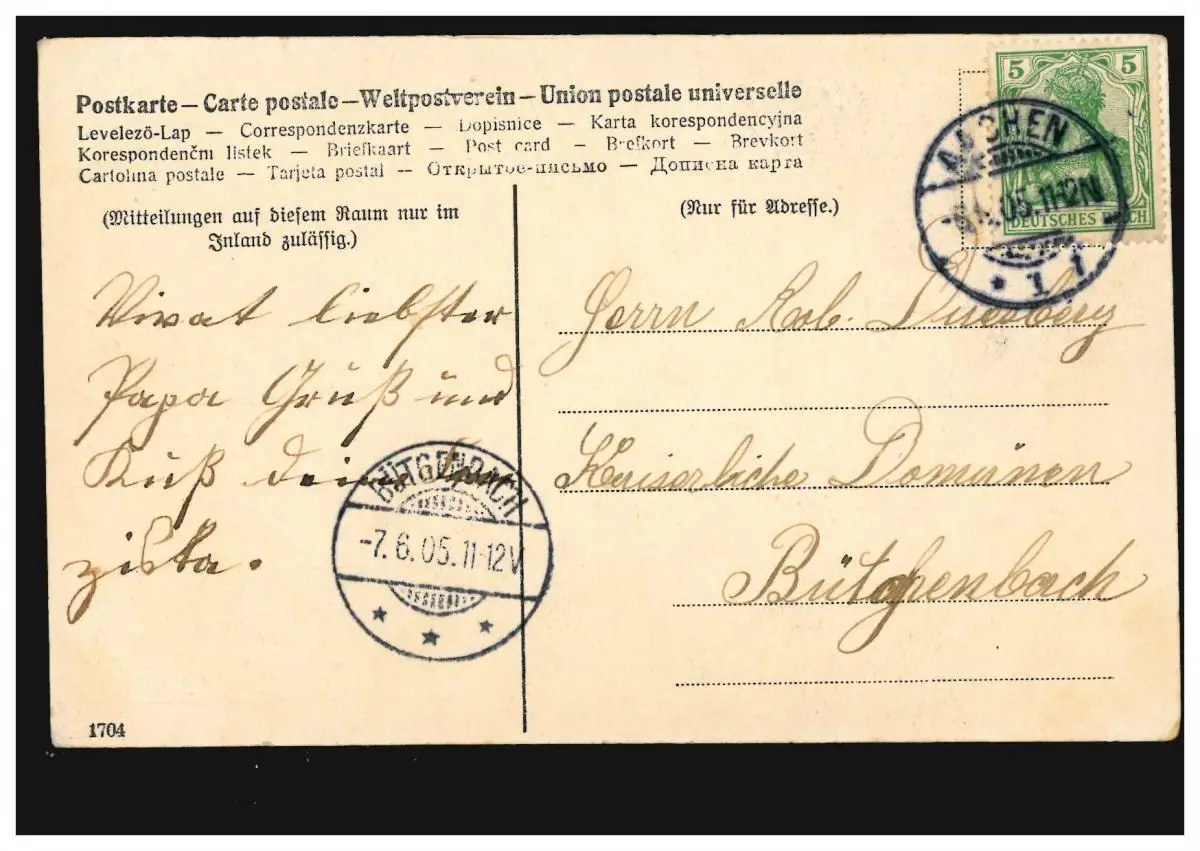 Postkarte — Carte postale — Weltpostverein — Union postale universelle
Levelezö-Lap — Correspondenzkarte — Dopisnice — Karta korespondencyjna
Korespondenčni listek — Briefkaart — Post card — Brefkort — Brevkort
Cartolina postale — Tarjeta postal — Открытое-письмо — Дописна карта
(Mitteilungen auf diesem Raum nur im
Inland zulässig.)
(Nur für Adresse.)
5 5
DEUTSCHES REICH
AACHEN
05.11-12N
* 1 f
Vivat liebster
Papa Gruß und
Kuß
ziska.
BÜTGENBACH
-7.6.05.11-12V
Herrn Rob. Duesberg
Kaiserliche Domänen
Bütgenbach
1704